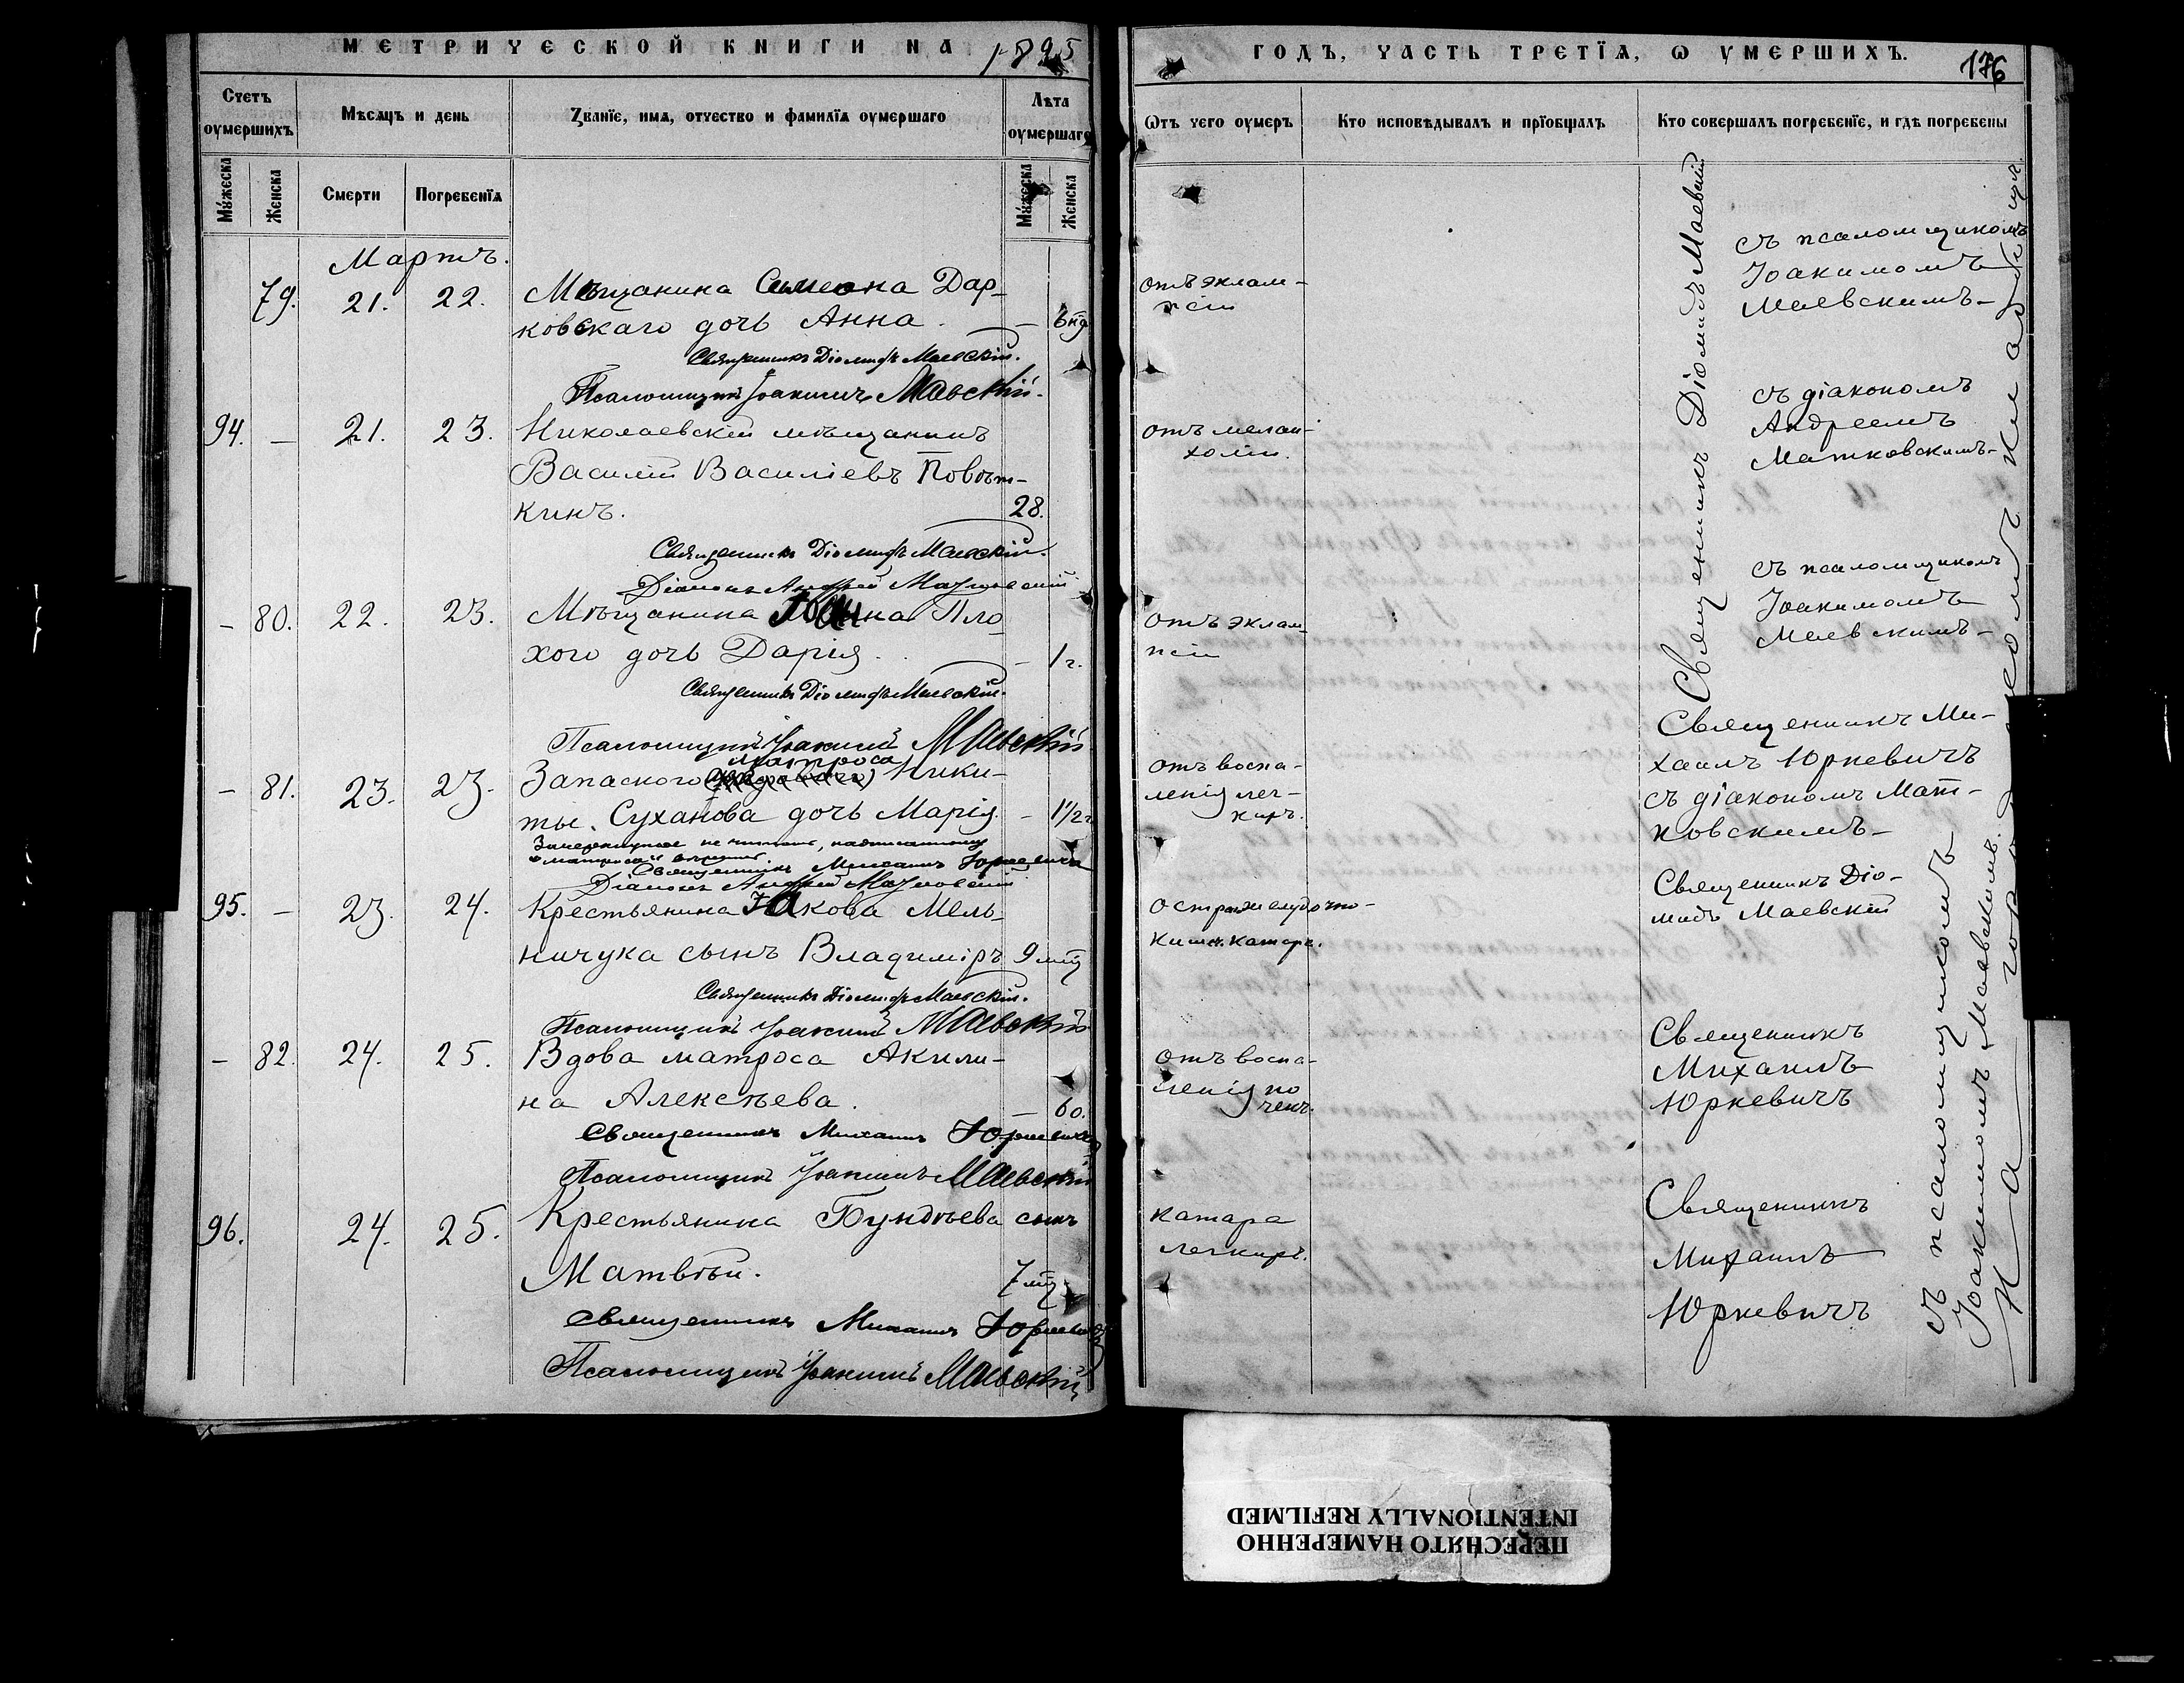 МЕТРИЧЕСКОЙ КНИГИ НА 1895
ГОДЪ, ЧАСТЬ ТРЕТІѦ, Ѡ УМЕРШИХЪ.
176
Счетъ оумершихъ
Мѣсяцъ и день
Званіе, имѧ, отчество и фамиліѧ оумершаго
Лѣта оумершаго
Ѿтъ чего оумеръ
Кто исповѣдывалъ и пріобщалъ
Кто совершалъ погребеніе, и гдѣ погребены
Мужеска
Женска
Смерти
Погребеніѧ
Мужеска
Женска
Мартъ.
79. 21. 22. Мѣщанина Симеона Дар-
ковскаго дочь Анна. — 6 нд
Священникъ Діомидъ Маевскій.
Псаломщикъ Іоакимъ Маевскій.
отъ эклам-
псіи
съ псаломщикомъ
Іоакимомъ
Маевскимъ
94. — 21. 23. Николаевскій мѣщанинъ
Василій Василіевъ Повѣт-
кинъ. 28.
Священникъ Діомидъ Маевскій.
Діаконъ Андрей Матковскій
отъ мелан-
холіи.
съ діакономъ
Андреемъ
Матковскимъ
— 80. 22. 23. Мѣщанина Іоанна Пло-
хого дочь Дарія. — 1 г.
Священникъ Діомидъ Маевскій.
Псаломщикъ Іоакимъ Маевскій
отъ эклам-
псіи
съ псаломщикомъ
Іоакимомъ
Маевскимъ
Священникъ Діомидъ Маевскій
матроса
— 81. 23. 23. Запаского Ники-
ты Суханова дочь Марія. — 1 1/2 г
Зачеркнутое не читать, надписанному
"матроса" вѣрить.
Священникъ Михаилъ Юркевичъ
Діаконъ Андрей Матковскій
отъ воспа-
ленія лег-
кихъ.
Священникъ Ми-
хаилъ Юркевичъ
съ діакономъ Мат-
ковскимъ
95. — 23. 24. Крестьянина Іакова Мель-
ничука сынъ Владиміръ 9 мц
Священникъ Діомидъ Маевскій.
Псаломщикъ Іоакимъ Маевскій
остр. желудочно-
кишк. катара.
Священникъ Діо-
мидъ Маевскій
— 82. 24. 25. Вдова матроса Акили-
на Алексѣева. — 60.
Священникъ Михаилъ Юркевичъ
Псаломщикъ Іоакимъ Маевскій
отъ воспа-
ленія по
чекъ.
Священникъ
Михаилъ
Юркевичъ
96. 24. 25. Крестьянина Бундѣева сынъ
Матвѣй. 7 мц.
Священникъ Михаилъ Юркевичъ
Псаломщикъ Іоакимъ Маевскій
катара
легкихъ.
Священникъ
Михаилъ
Юркевичъ
съ псаломщикомъ
Іоакимомъ Маевскимъ.
На городскомъ кладбищѣ.
ПЕРЕСНЯТО НАМЕРЕННО
INTENTIONALLY REFILMED